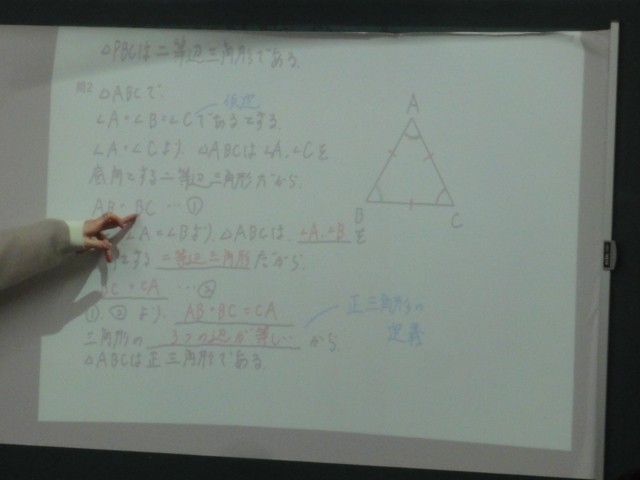 △PBCは二等辺三角形である
問2 △ABCで、
∠A=∠B=∠Cであるとする。
仮定
∠A=∠Cより、△ABCは∠A、∠Cを
底角とする二等辺三角形だから、
AB=BC …①
∠A=∠Bより、△ABCは ∠A、∠B を
とする 二等辺三角形 だから、
BC=CA …②
①、②より、AB=BC=CA
三角形の 3つの辺が等しい から
△ABCは正三角形である
正三角形の
定義
A
B
C